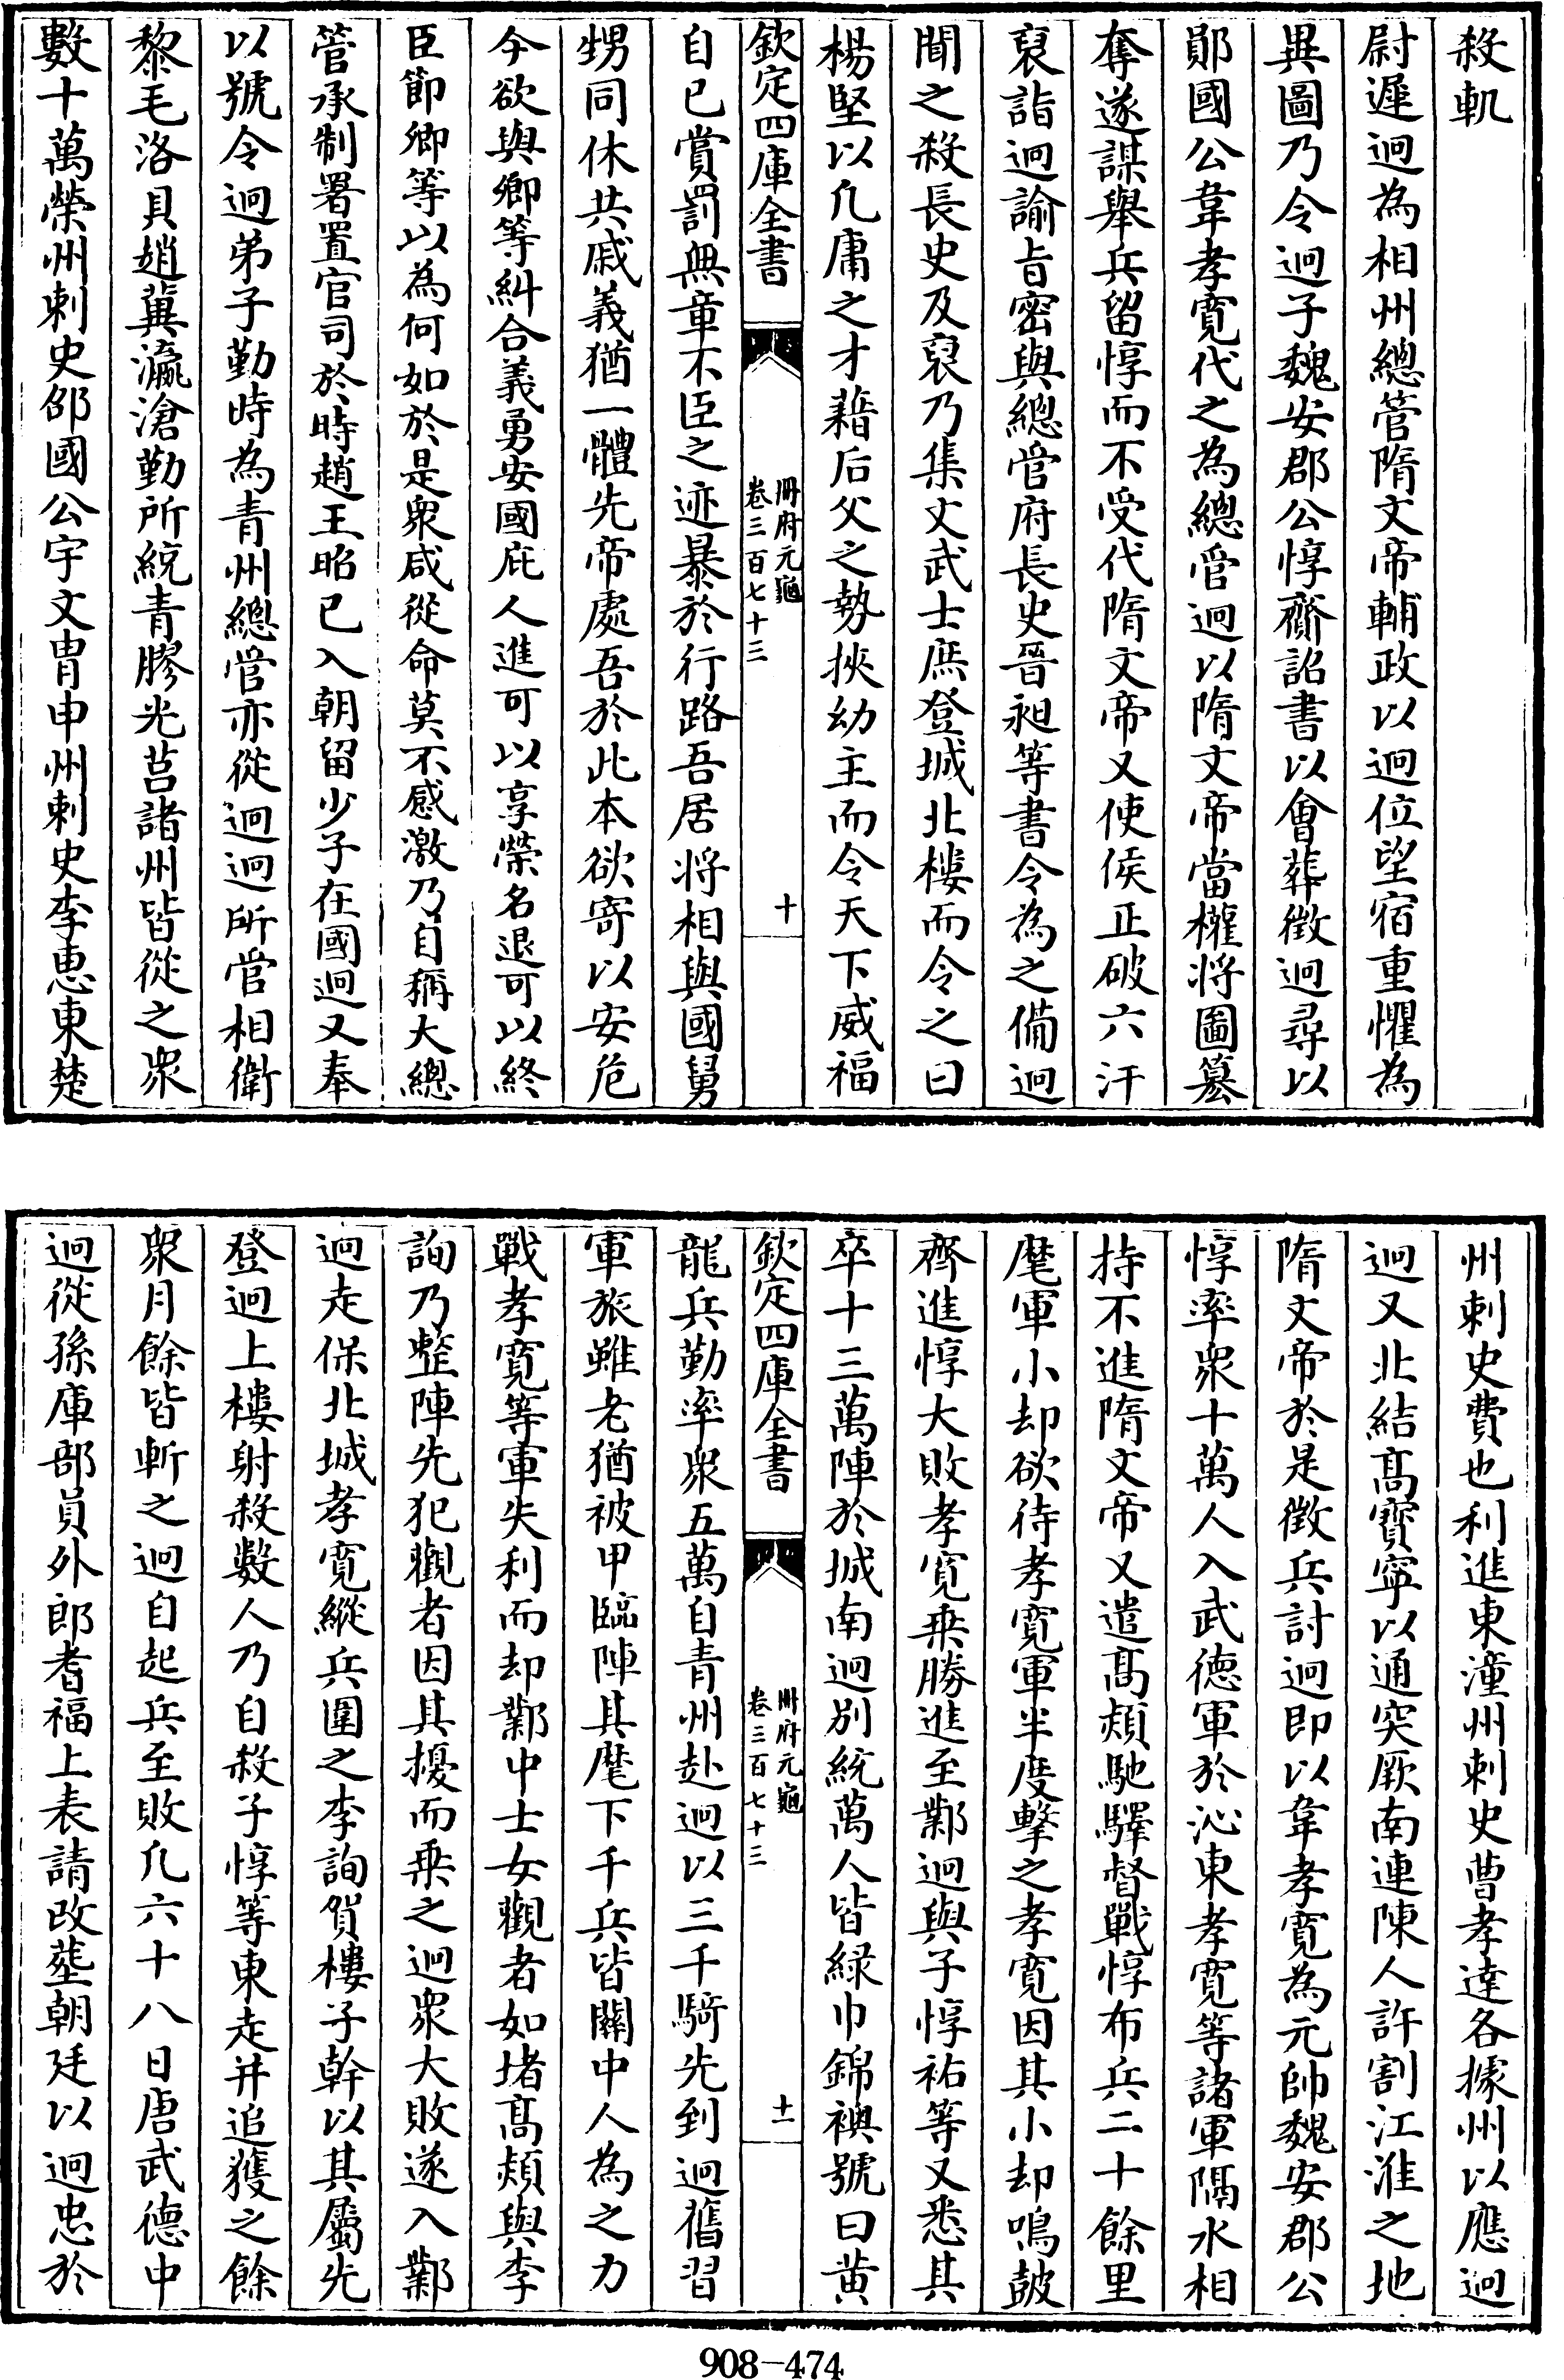 殺軌
尉遲迥為相州總管隋文帝輔政以迥位望宿重懼為
異圖乃令迥子魏安郡公惇齎詔書以會葬徵迥尋以
鄖國公韋孝寛代之為總管迥以隋文帝當權将圖簒
奪遂謀舉兵留惇而不受代隋文帝又使侯正破六汗
裒詣迥諭旨密與總管府長史晉昶等書令為之備迥
聞之殺長史及裒乃集文武士庶登城北樓而令之曰
楊堅以凡庸之才藉后父之勢挾幼主而令天下威福
欽定四庫全書
冊府元龜
卷三百七十三
十
自已賞罰無章不臣之迹暴於行路吾居将相與國舅
甥同休共戚義猶一體先帝處吾於此本欲寄以安危
今欲與卿等糾合義勇安國庇人進可以享榮名退可以終
臣節卿等以為何如於是衆咸從命莫不感激乃自稱大總
管承制署置官司於時趙王昭已入朝留少子在國迥又奉
以號令迥弟子勤時為青州總管亦從迥迥所管相衛
黎毛洛貝趙冀瀛滄勤所統青膠光莒諸州皆從之衆
數十萬榮州刺史邵國公宇文胄申州刺史李恵東楚
州刺史費也利進東潼州刺史曹孝達各據州以應迥
迥又北結髙寳寧以通突厥南連陳人許割江淮之地
隋文帝於是徵兵討迥即以韋孝寛為元帥魏安郡公
惇率衆十萬人入武徳軍於沁東孝寛等諸軍隔水相
持不進隋文帝又遣髙熲馳驛督戰惇布兵二十餘里
麾軍小却欲待孝寛軍半度擊之孝寛因其小却鳴鼓
齊進惇大敗孝寛乗勝進至鄴迥與子惇祐等又悉其
卒十三萬陣於城南迥別統萬人皆緑巾錦襖號曰黄
欽定四庫全書
冊府元龜
卷三百七十三
十一
龍兵勤率衆五萬自青州赴迥以三千騎先到迥舊習
軍旅雖老猶被甲臨陣其麾下千兵皆關中人為之力
戰孝寛等軍失利而却鄴中士女觀者如堵髙熲與李
詢乃整陣先犯觀者因其擾而乗之迥衆大敗遂入鄴
迥走保北城孝寛縱兵圍之李詢賀樓子幹以其屬先
登迥上樓射殺數人乃自殺子惇等東走并追獲之餘
衆月餘皆斬之迥自起兵至敗凡六十八日唐武徳中
迥從孫庫部員外郎耆福上表請改塟朝廷以迥忠於
908-474